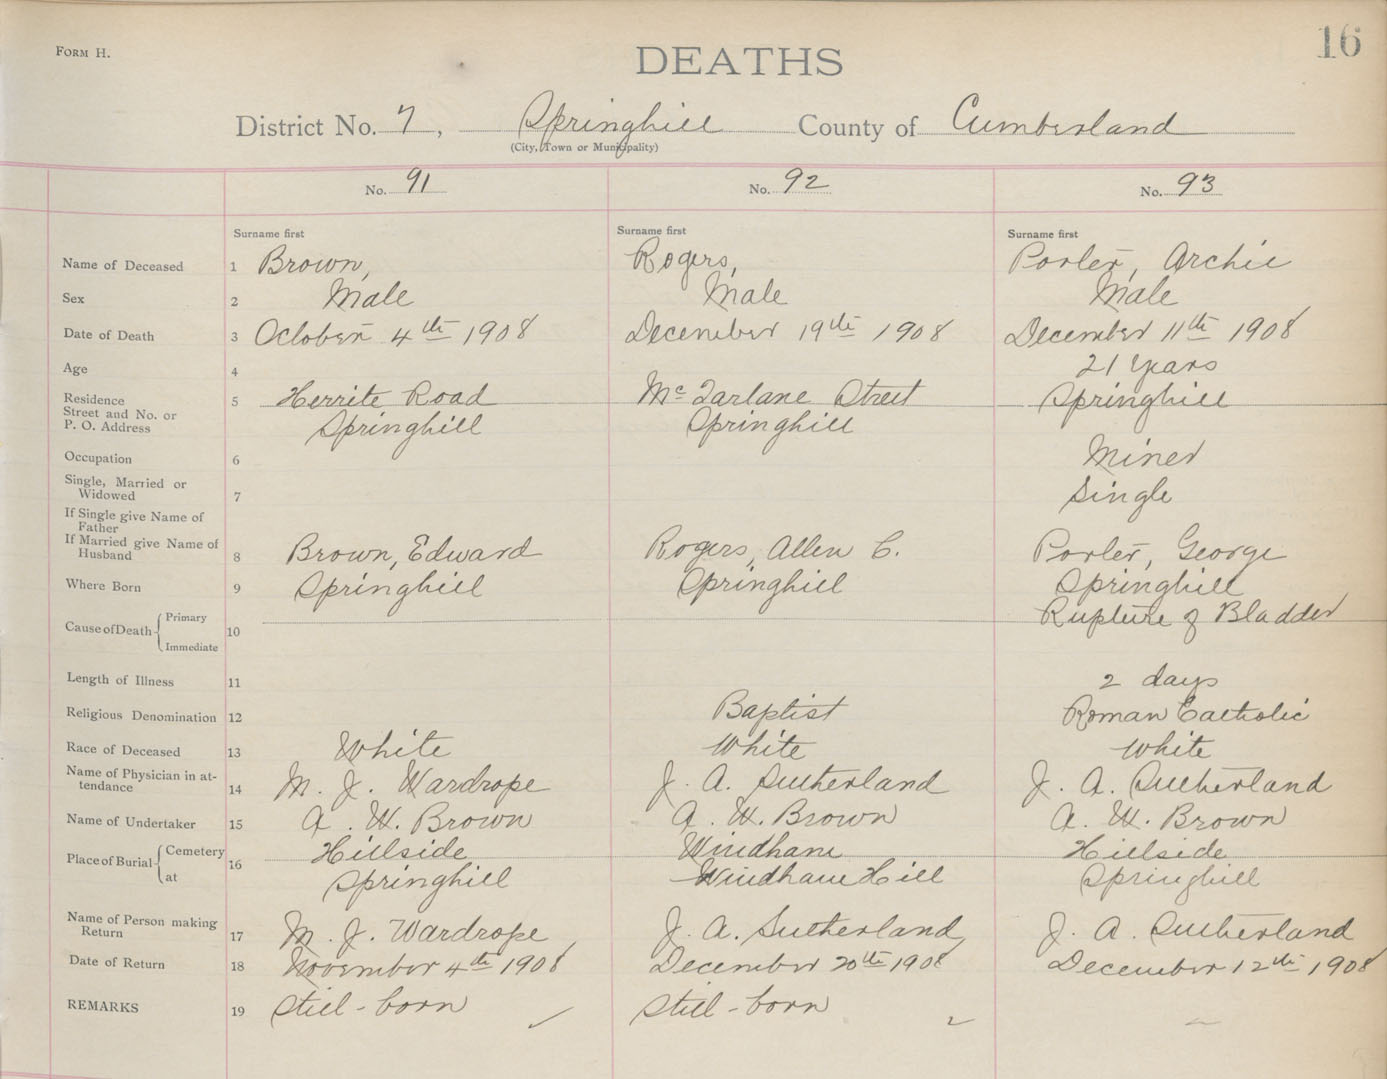 FORM H.
DEATHS
16
District No. 7, Springhill County of Cumberland
(City, Town or Municipality)
No. 91 No. 92 No. 93
Surname first Surname first Surname first
Name of Deceased 1 Brown, Rogers, Porter, Archie
Sex 2 Male Male Male
Date of Death 3 October 4th 1908 December 19th 1908 December 11th 1908
Age 4 21 Years
Residence 5 Herrite Road McFarlane Street Springhill
Street and No. or
P. O. Address Springhill Springhill
Occupation 6 Miner
Single, Married or
Widowed 7 Single
If Single give Name of
Father
If Married give Name of
Husband 8 Brown, Edward Rogers, Allen C. Porter, George
Where Born 9 Springhill Springhill Springhill
Cause of Death Primary 10 Rupture of Bladder
Immediate
Length of Illness 11 2 days
Religious Denomination 12 Baptist Roman Catholic
Race of Deceased 13 White White White
Name of Physician in at-
tendance 14 M. J. Wardrope J. A. Sutherland J. A. Sutherland
Name of Undertaker 15 A. W. Brown A. W. Brown A. W. Brown
Place of Burial Cemetery 16 Hillside Windham Hillside
at Springhill Windham Hill Springhill
Name of Person making
Return 17 M. J. Wardrope J. A. Sutherland J. A. Sutherland
Date of Return 18 November 4th 1908 December 20th 1908 December 12th 1908
REMARKS 19 Still-born Still-born